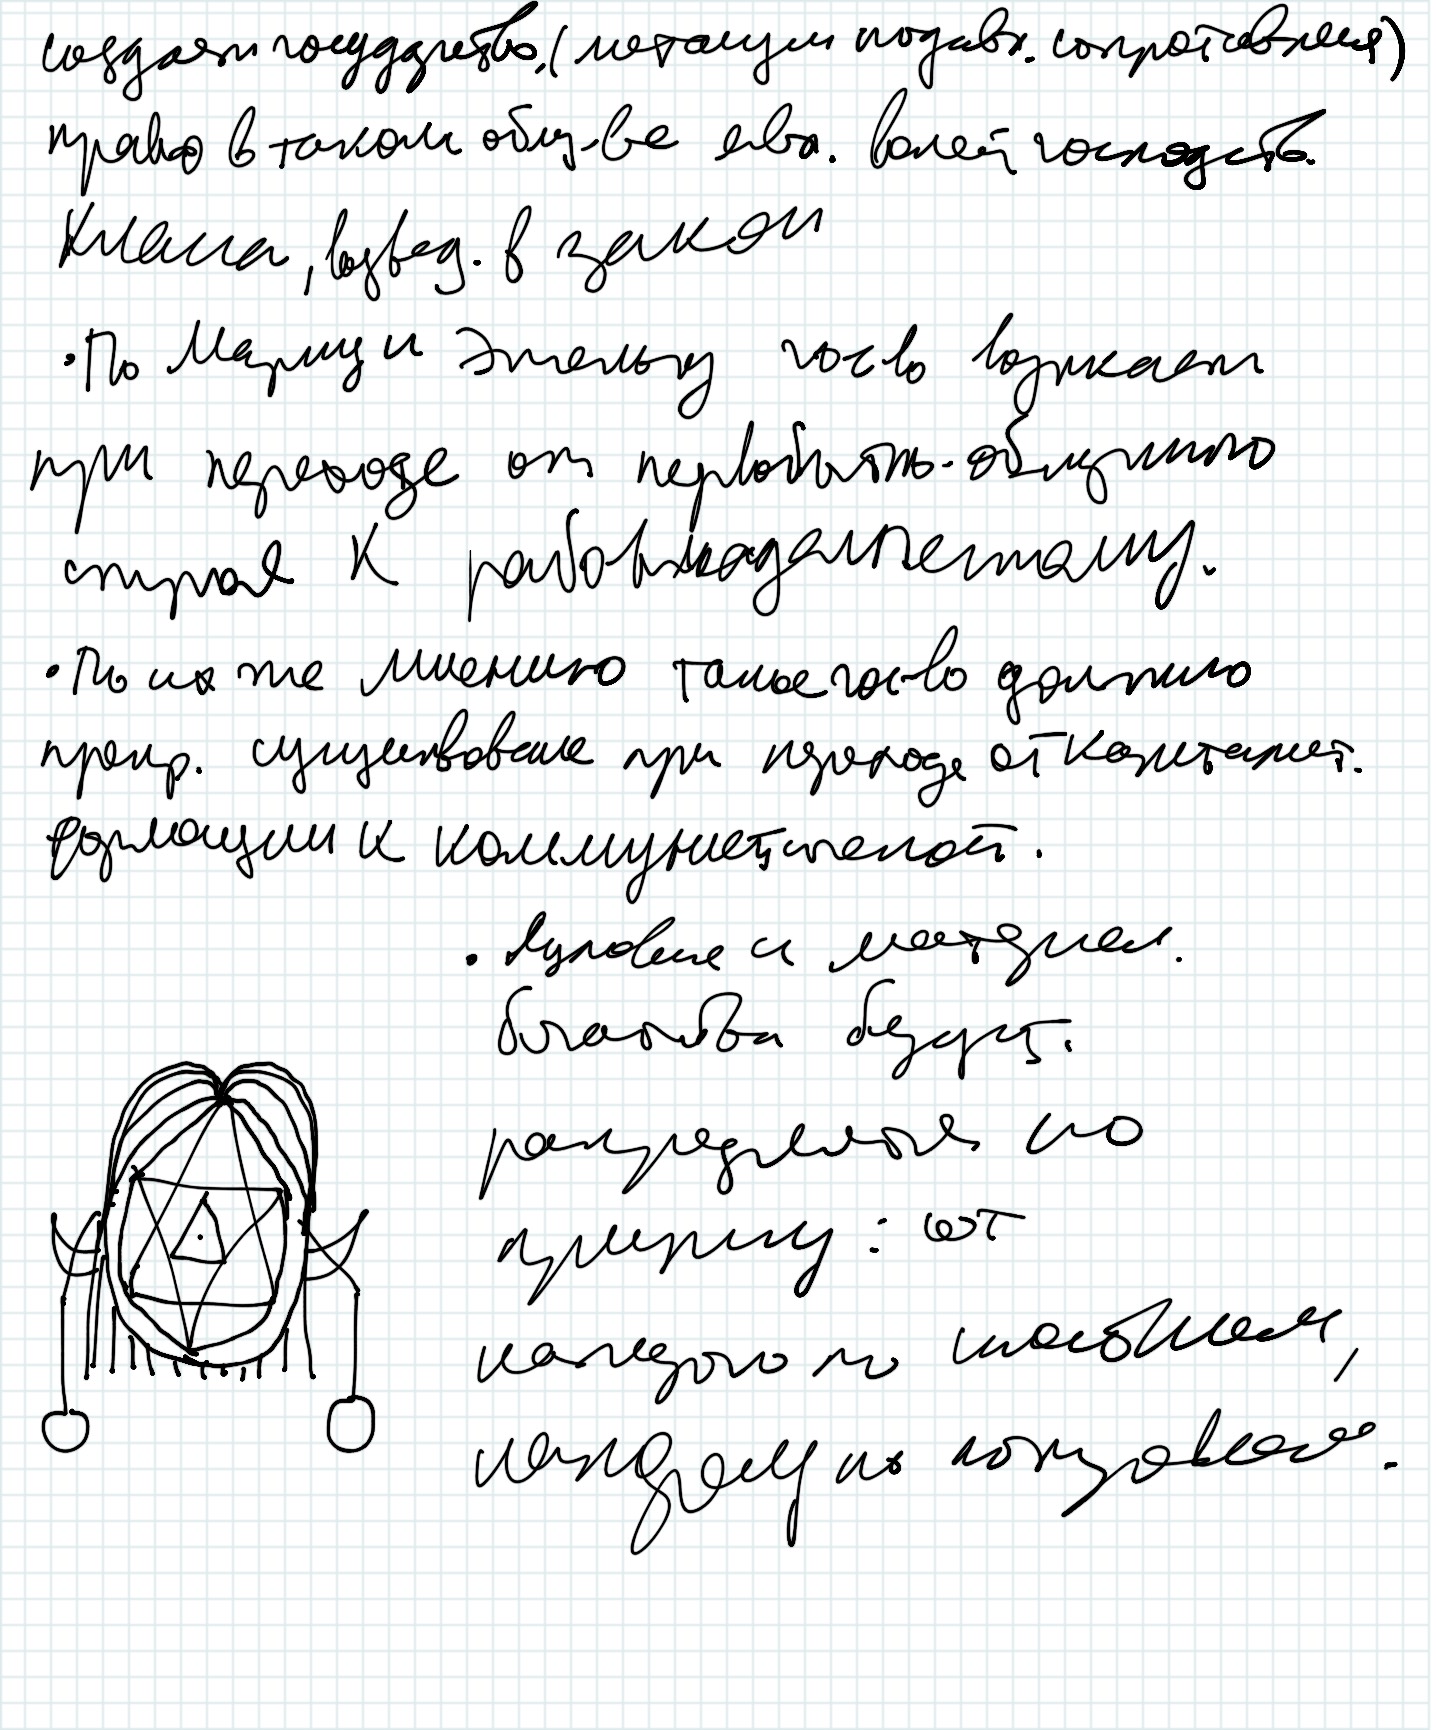 создает государство, (механизм подавл. сопротивления)
право в таком общ-ве явл. волей господств.
класса, возвед. в закон
· По Марксу и Энгельсу гос-во возникает
при переходе от первобытно-общинного
строя к рабовладельческому.
· По их же мнению такое гос-во должно
прекр. существование при переходе от капиталист.
формации к коммунистической.
· Духовные и материал.
богатства будут.
распределяться по
принципу: от
каждого по способностям,
каждому по потребностям.